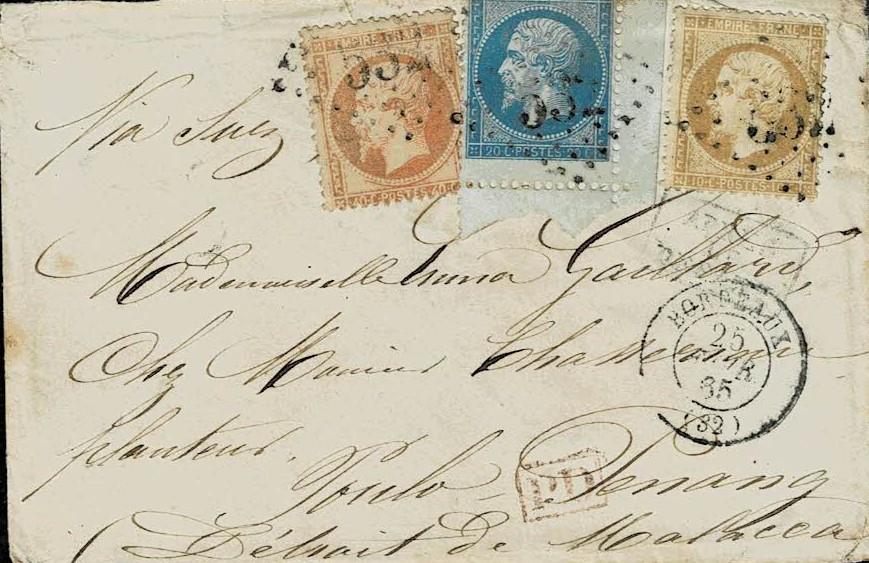 EMPIRE FRANC
40 C POSTES 40 C
20 C POSTES
EMPIRE FRANC
10 C POSTES 10 C
532
532
Via Suez
Mademoiselle Emma Gaillard,
BORDEAUX
25
65
(32)
Chez Monsieur
planteur.
Poulo-Penang
PD
(Détroit de Malacca